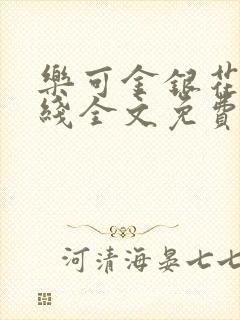 樂可金銀花
綫全文免費
河清海晏七七